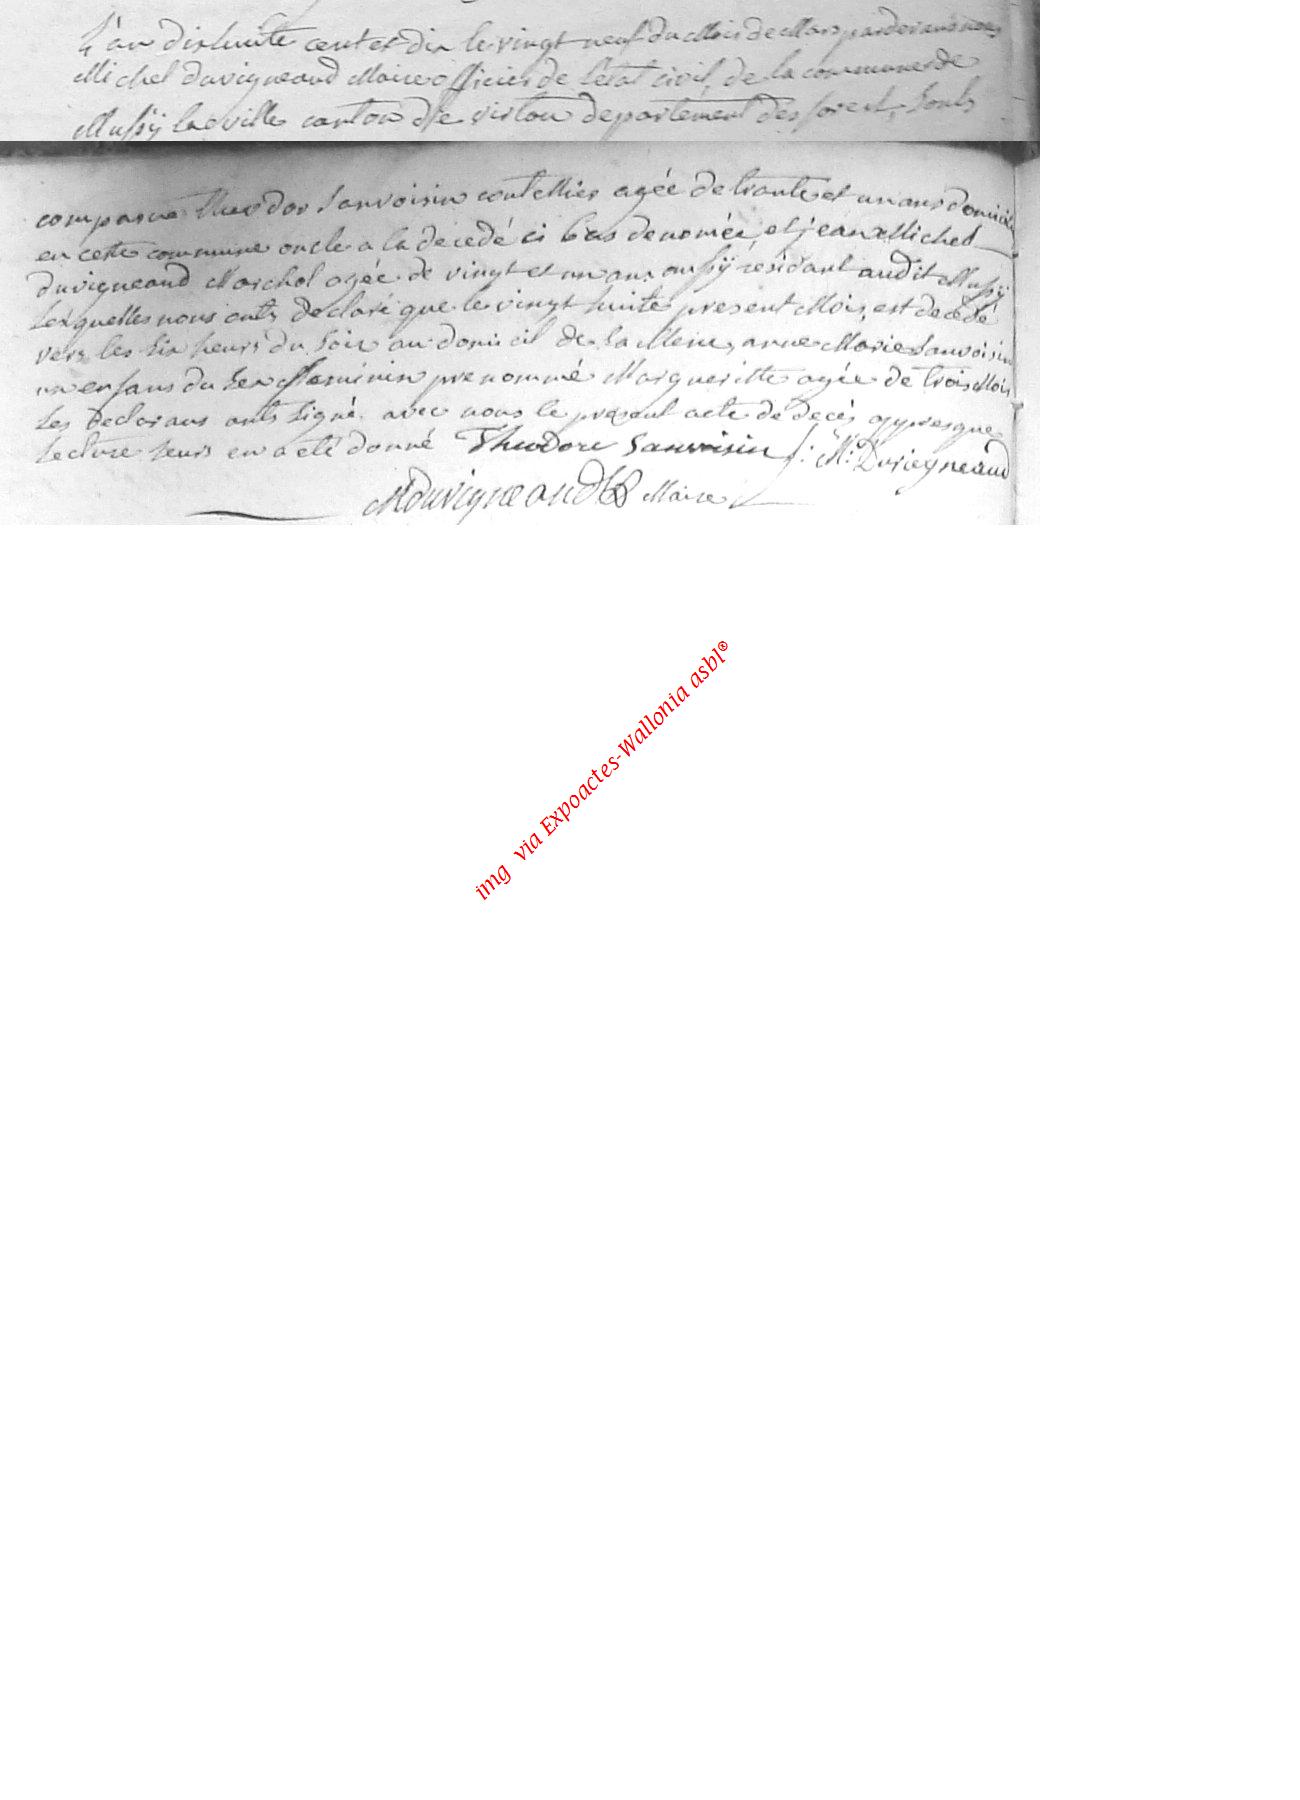 L'an dixhuite cent et dix le vingt neuf du Mois de Mars pardevant nous
Michel duvigneaud Maire officier de l'etat civil, de la commune de
Mussÿ la ville canton de virton departement des forest, sonts
comparue theodor Sanvoisin coutellier agée de trante et un ans domicilié
en cette commune oncle a la decedé ci bas denomée, et jean Michel
duvigneaud Marchal agée de vingt et un ans aussÿ residant audit Mussÿ
Lesquelles nous onts declaré que le vingt huite present Mois, est decedé
vers les six heurs du soir au domicil de sa Mere, anne Marie Sanvoisin
un enfans du sex feminin prenommé Margueritte agée de trois Mois
Les Declarans onts signé avec nous le present acte de decés appres que
Lecture leurs en a eté donné Theodore Sanvoisin J: M: Duvigneaud
MDuvigneaud Maire
img via Expoactes-Wallonia asbl®